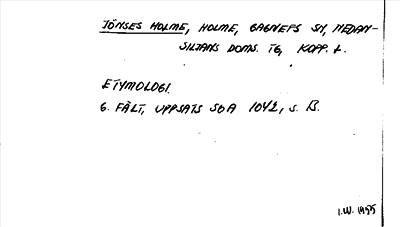 JÖNSES HOLME, HOLME, GAGNEFS SN, NEDAN-
SILJANS DOMS. TG, KOPP. L.
ETYMOLOGI.
G. FÄLT, UPPSATS SOA 1042, S. 13.
I.W. 1935